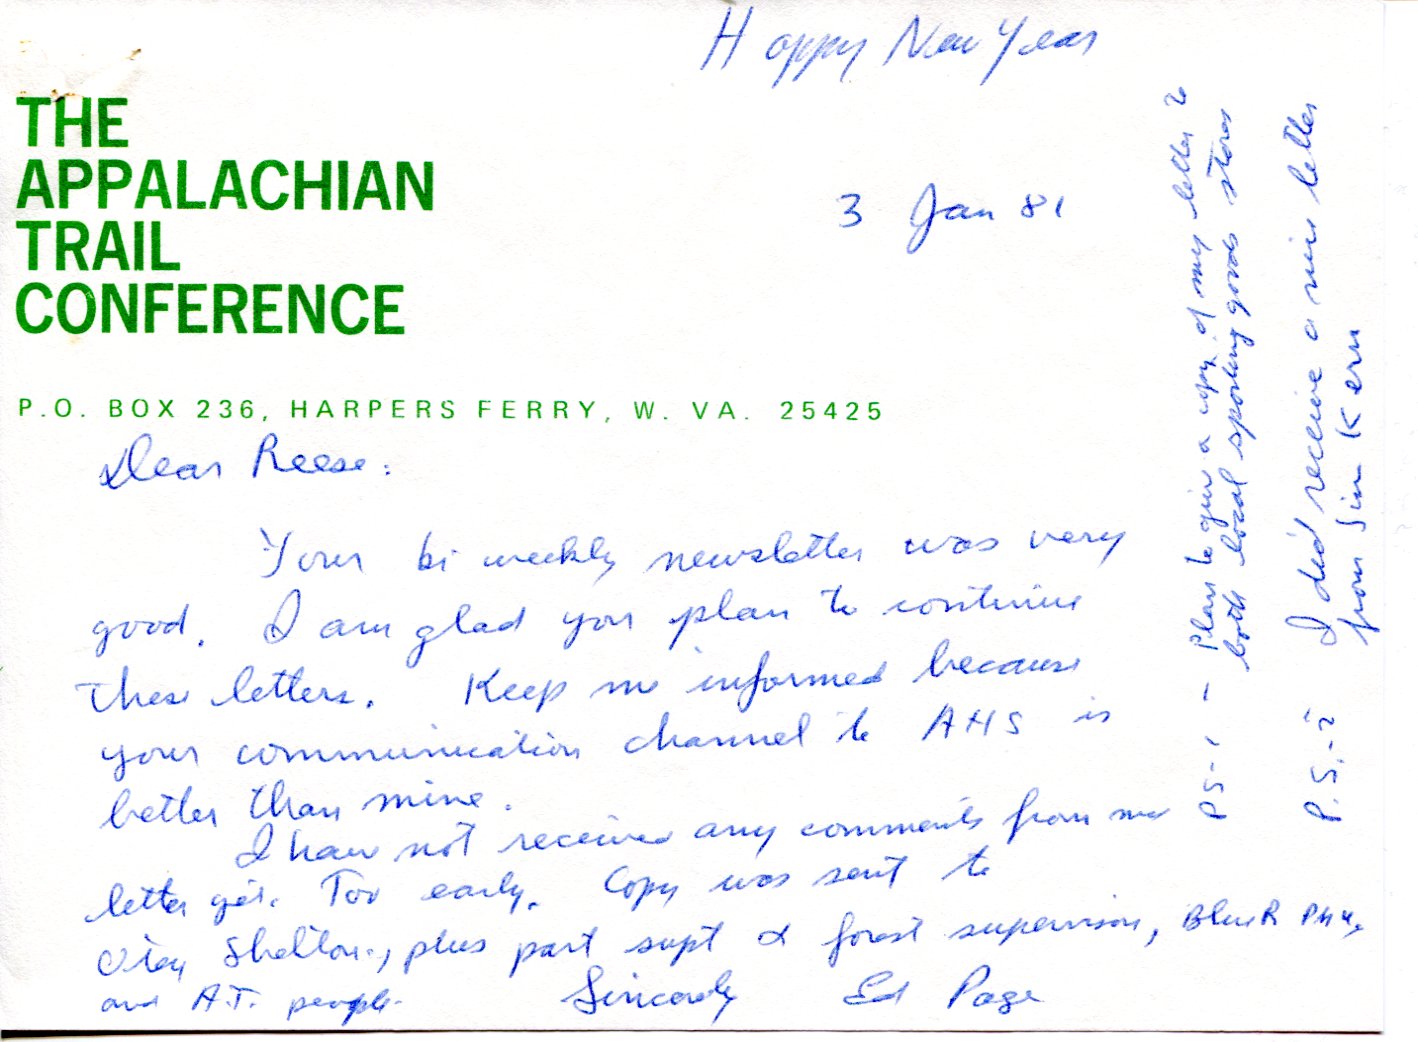 Happy New Year
THE
APPALACHIAN
TRAIL
CONFERENCE
3 Jan 81
P.O. BOX 236, HARPERS FERRY, W. VA. 25425
Dear Reese:
Your bi weekly newsletter was very
good. I am glad you plan to continue
these letters. Keep me informed because
your communication channel to AHS is
better than mine.
I have not received any comments from my
letter yet. Too early. Copy was sent to
Shelton, plus park supt & forest supervisor, Blue R
and A.T. people.
Sincerely Ed Page
PS-1 - Plan to give a copy of my letter to
both local sporting goods stores
P.S.-2 I did receive a nice letter
from Jim Kern